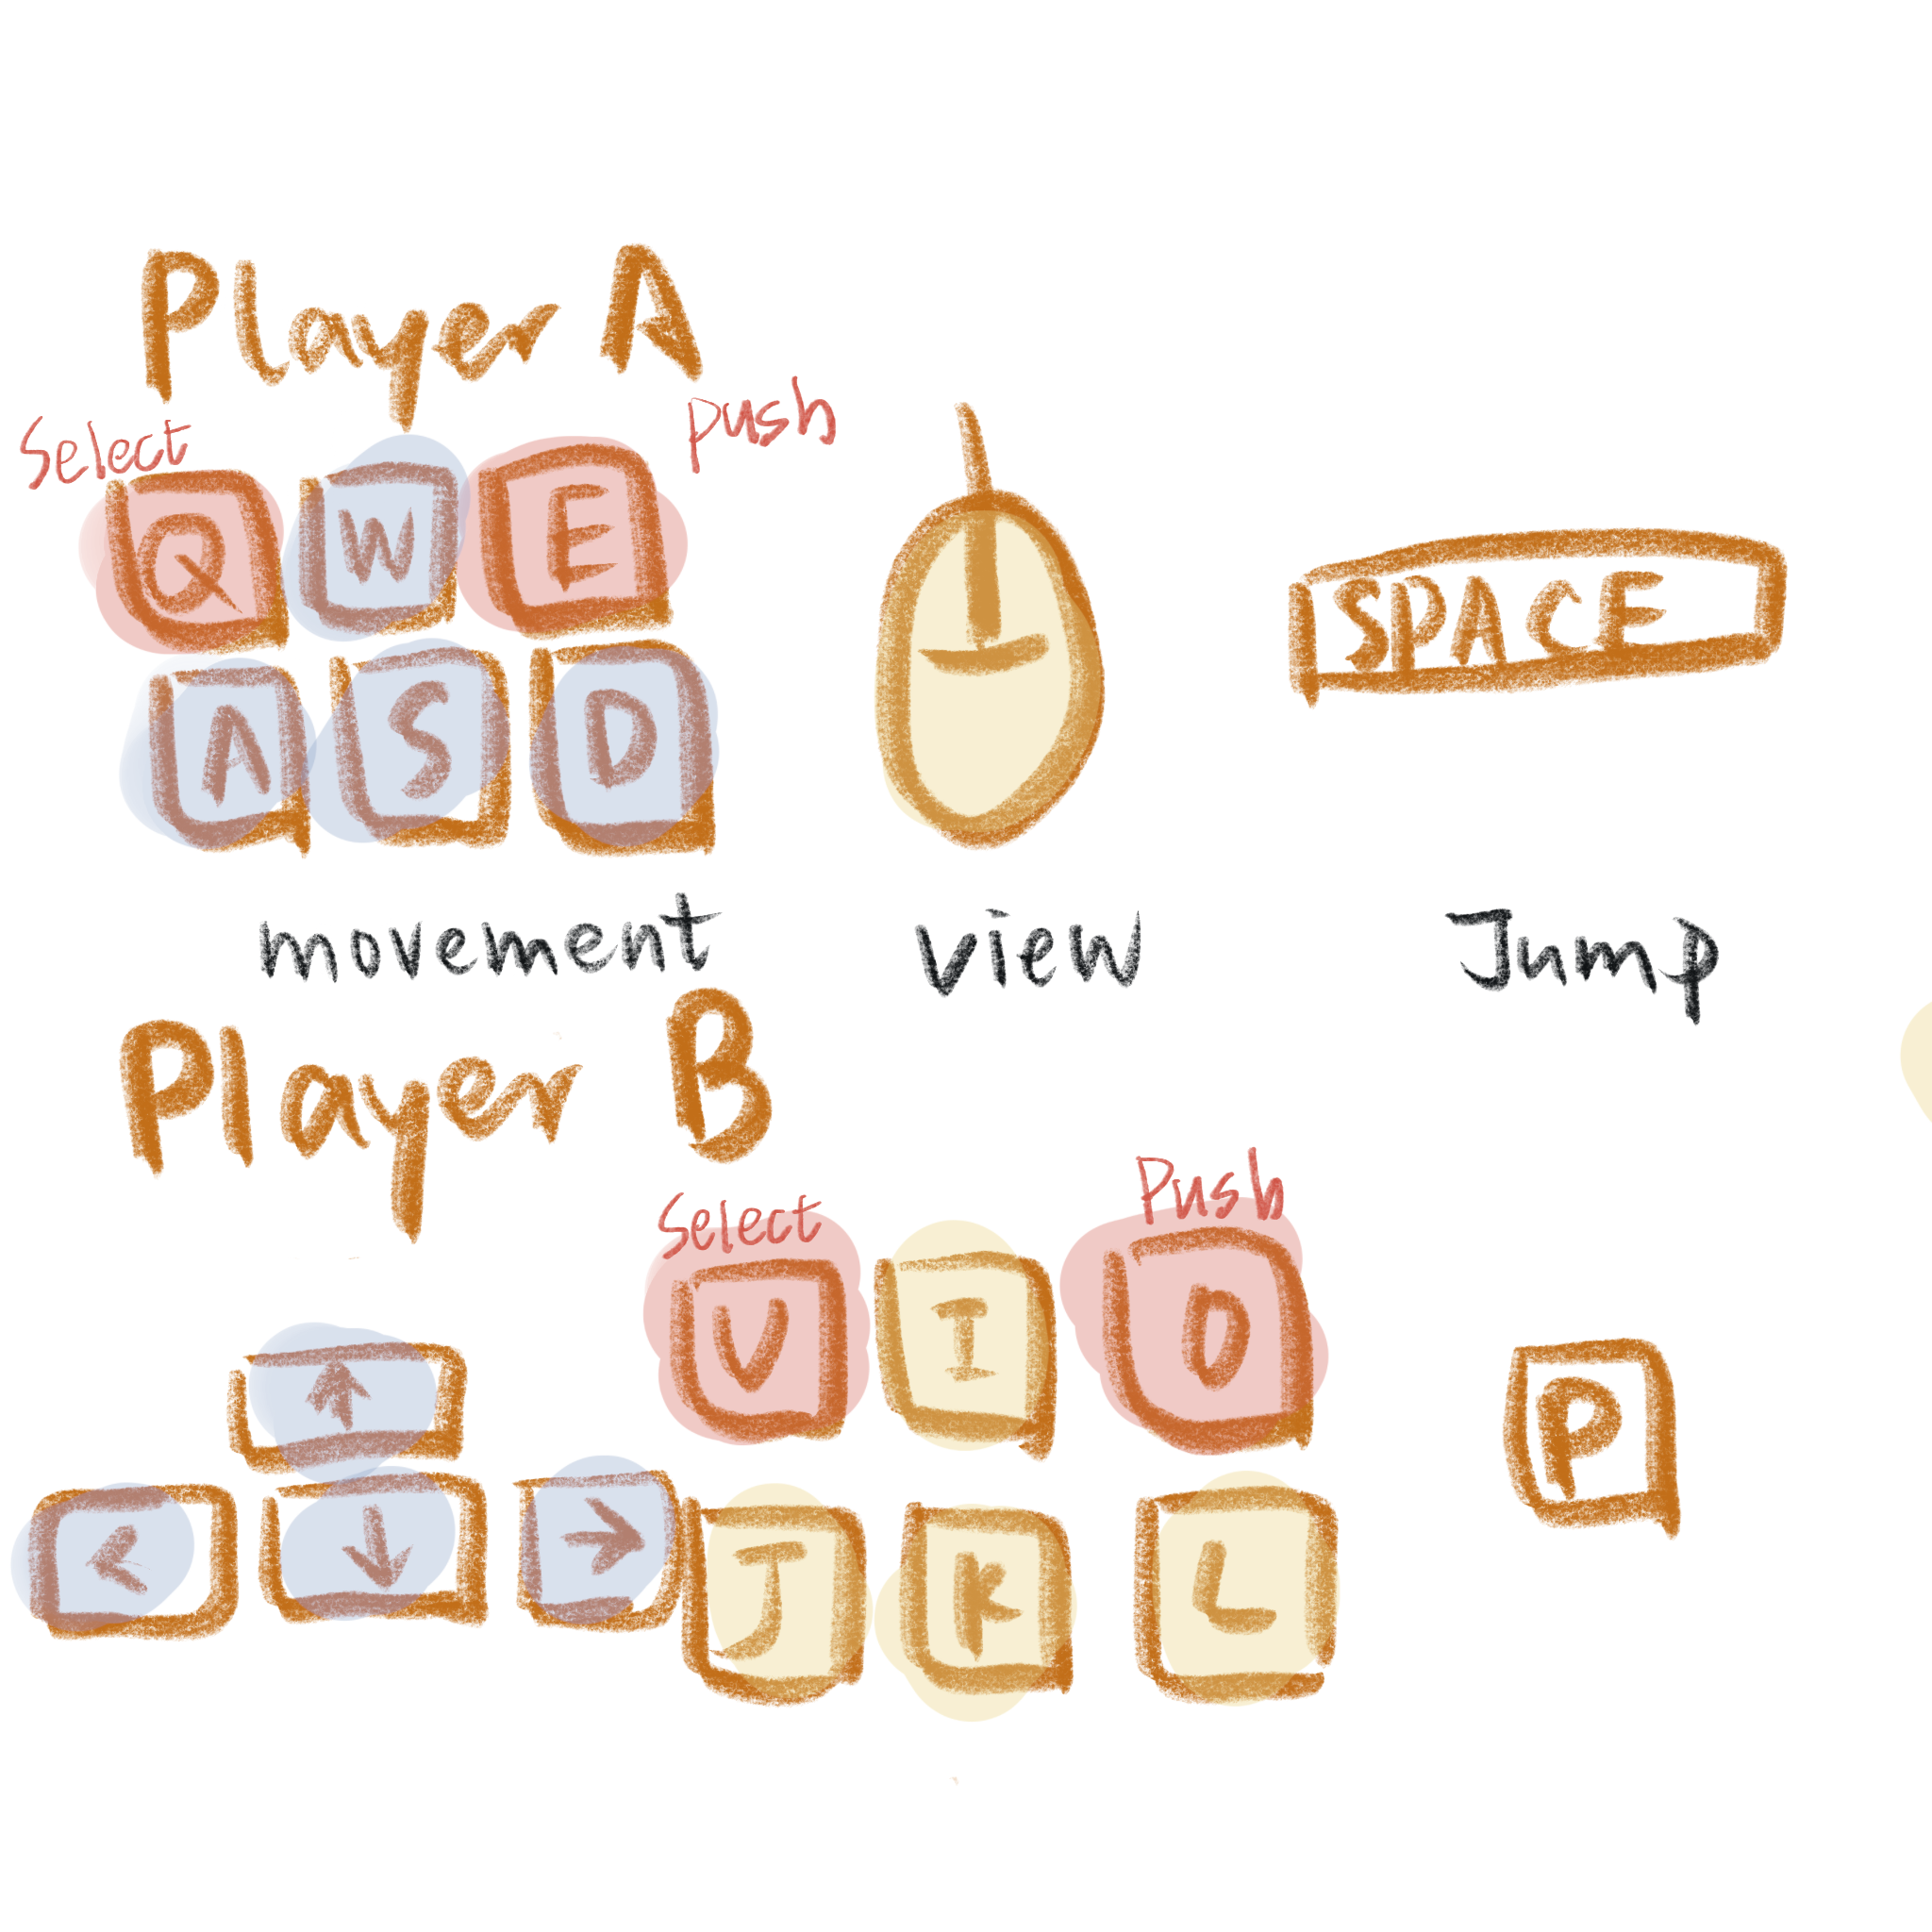 Player A
Select push
Q W E
A S D
SPACE
movement view Jump
Player B
Select Push
U I O
↑
< ↓ →
J K L
P